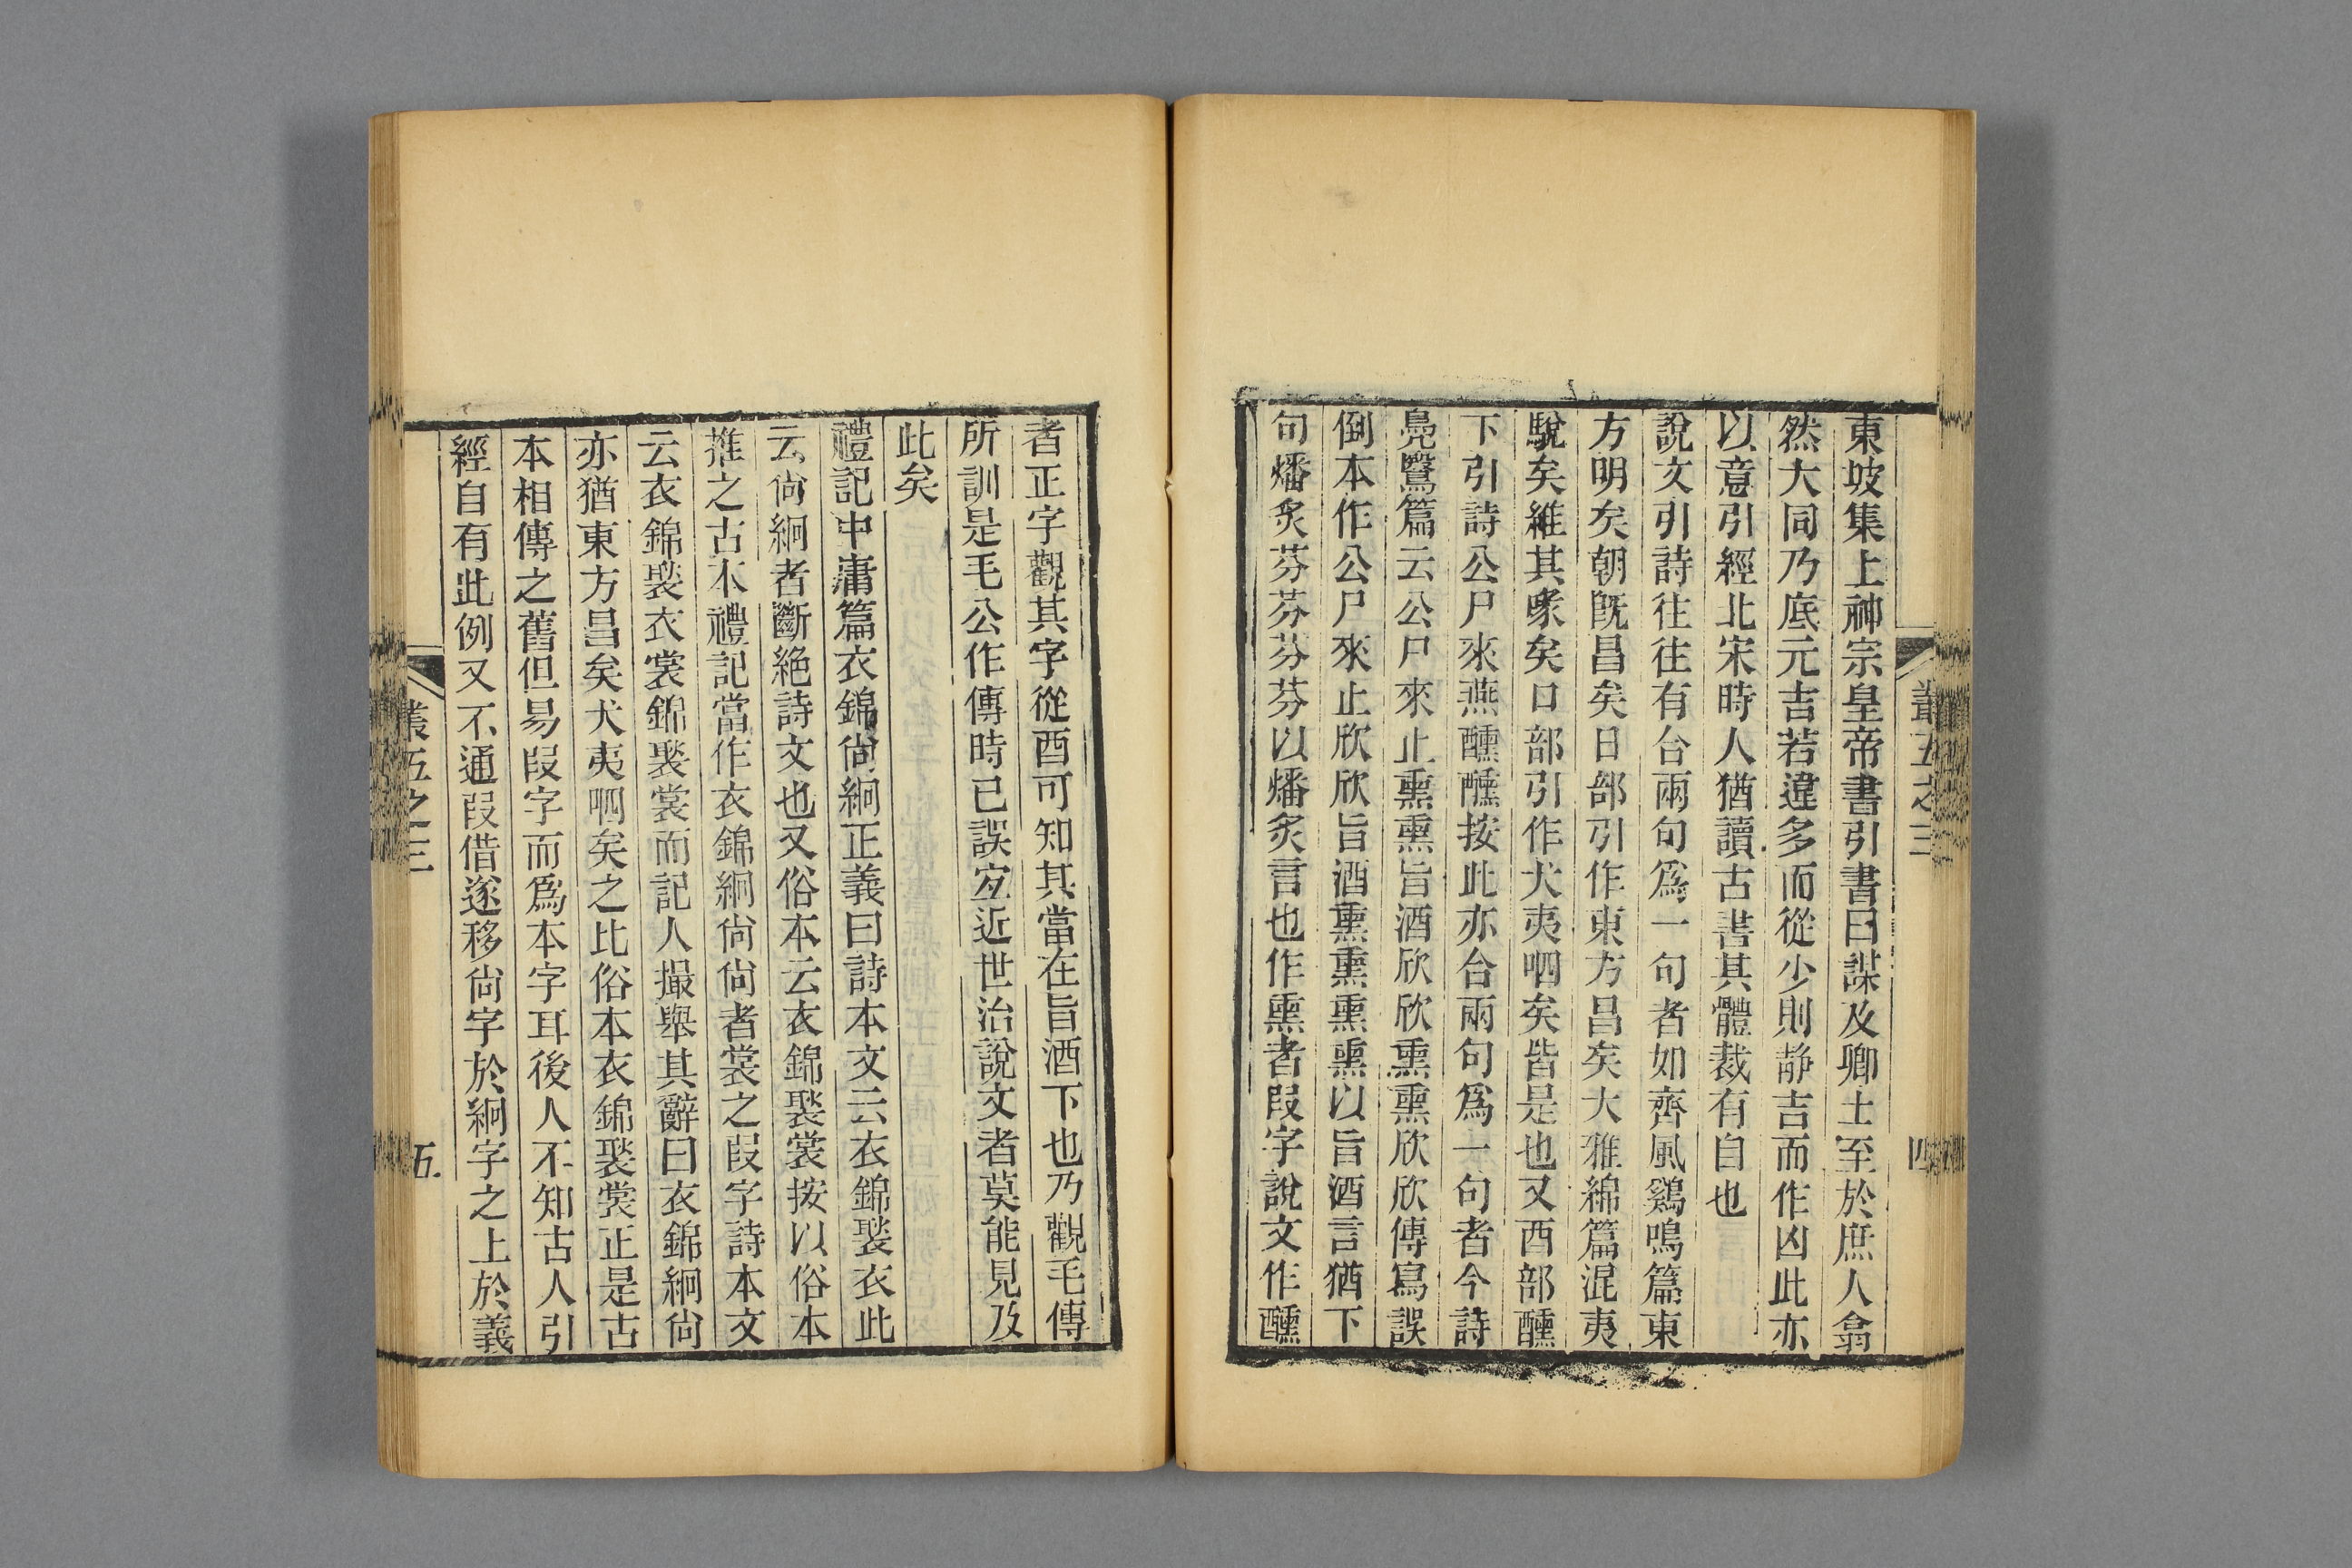 叢五之三
四
東坡集上神宗皇帝書引書曰謀及卿士至於庶人翕
然大同乃底元吉若違多而從少則靜吉而作凶此亦
以意引經北宋時人猶讀古書其體裁有自也
說文引詩往往有合兩句爲一句者如齊風鷄鳴篇東
方明矣朝旣昌矣日部引作東方昌矣大雅綿篇混夷
駾矣維其喙矣口部引作犬夷呬矣皆是也又酉部醺
下引詩公尸來燕醺醺按此亦合兩句爲一句者今詩
鳧鷖篇云公尸來止熏熏旨酒欣欣熏熏欣欣傳寫誤
倒本作公尸來止欣欣旨酒熏熏熏熏以旨酒言猶下
句燔炙芬芬芬芬以燔炙言也作熏者叚字說文作醺
者正字觀其字從酉可知其當在旨酒下也乃觀毛傳
所訓是毛公作傳時已誤宐近世治說文者莫能見及
此矣
禮記中庸篇衣錦尙絅正義曰詩本文云衣錦褧衣此
云尙絅者斷絕詩文也又俗本云衣錦褧裳按以俗本
推之古本禮記當作衣錦絅尙尙者裳之叚字詩本文
云衣錦褧衣裳錦褧裳而記人撮舉其辭曰衣錦絅尙
亦猶東方昌矣犬夷呬矣之比俗本衣錦褧裳正是古
本相傳之舊但易叚字而爲本字耳後人不知古人引
經自有此例又不通叚借遂移尙字於絅字之上於義
叢五之三
五